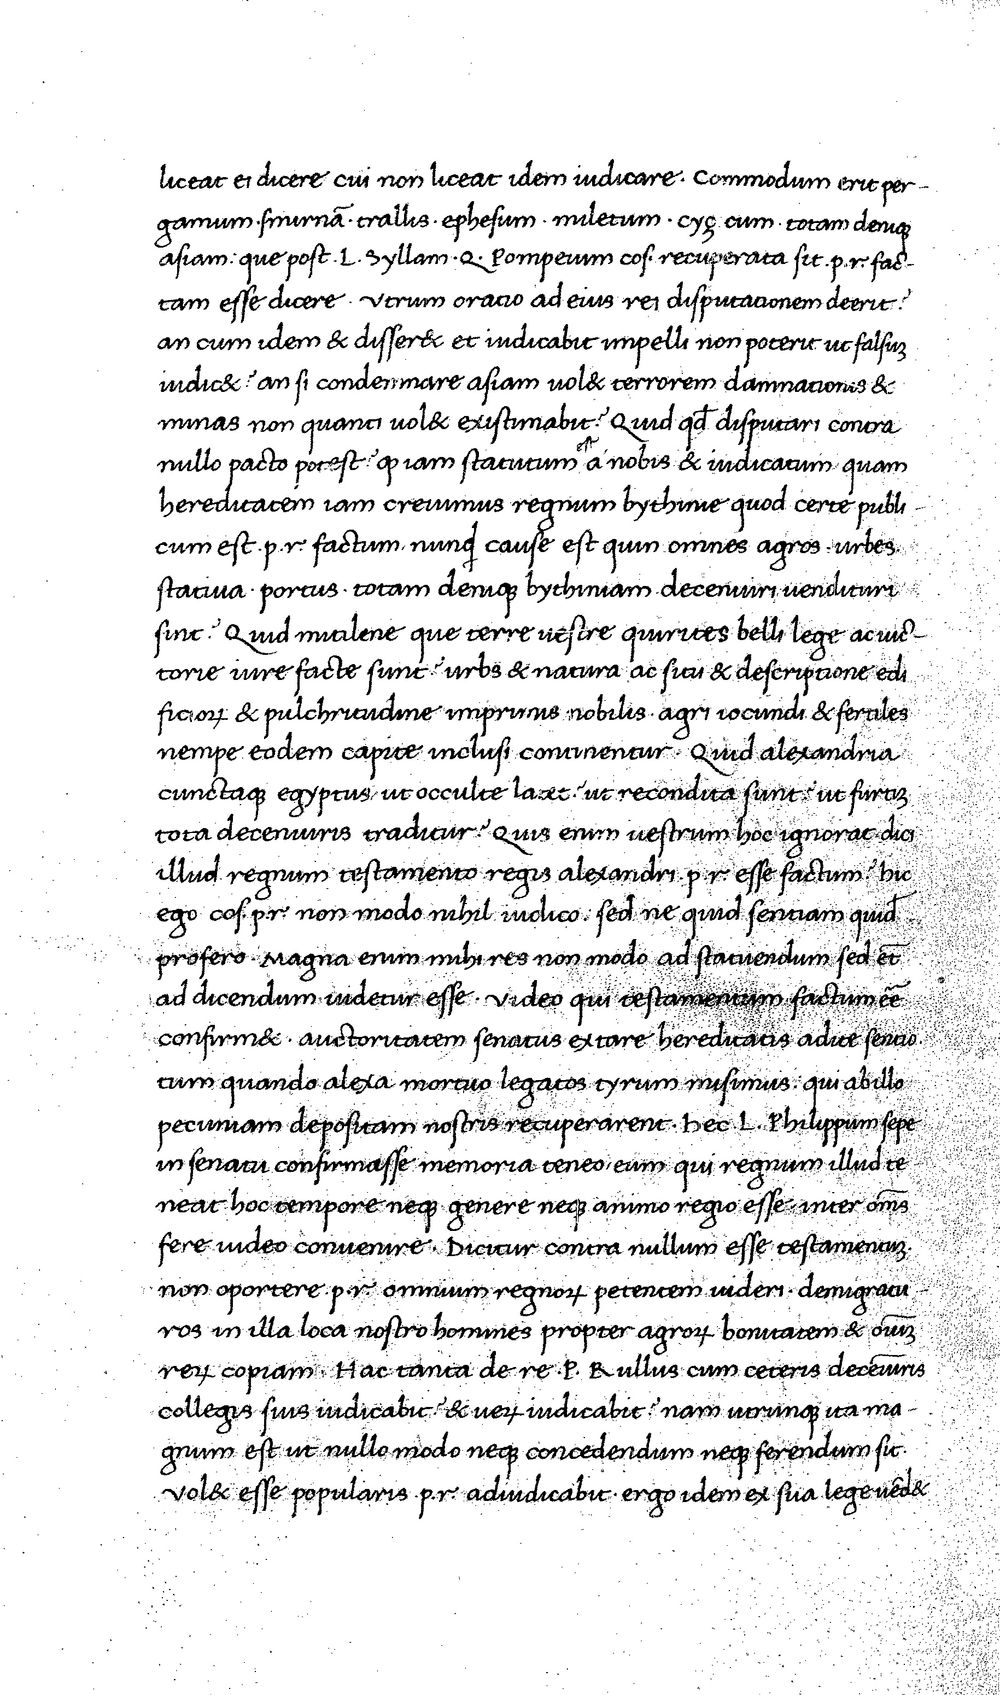 liceat ei dicere cui non liceat idem iudicare. Commodum erit per-
gamum · smirnā · trallis · ephesum · miletum · cyç cum · totam deniqꝫ
asiam: que post · L · Syllam · Q · Pompeium cos. recuperata sit · p. r. fac-
tam esse dicere · Vtrum oratio ad eius rei disputationem deerit?
an cum idem & disser& et iudicabit impelli non poterit ut falsuꝫ
iudic&? an si condemnare asiam uol& terrorem damnationis &
minas non quanti uol& existimabit? Quid qđ disputari contra
nullo pacto potest? qꝫ iam statutum est a nobis & iudicatum quam
hereditatem iam creuimus regnum bythinie quod certe publi-
cum est · p. r. factum · nunqd cause est quin omnes agros · urbes
statiua · portus · totam deniqꝫ bythiniam decemuiri uendituri
sint? Quid mitilene que terre uestre quirites belli lege ac uic-
torie iure facte sunt? urbs & natura ac situ & descriptione edi
ficioꝝ & pulchritudine imprimis nobilis · agri iocundi & fertiles
nempe eodem capite inclusi continentur · Quid alexandria
cunctaqꝫ egyptus ut occulte lat et? ut recondita sunt? ut furtiꝫ
tota decemuiris traditur? Quis enim uestrum hoc ignorat dici
illud regnum testamento regis alexandri · p. r. esse factum? hic
ego cos. p. r. non modo nihil iudico · sed ne quid sentiam quid
profero · Magna enim mihi res non modo ad statuendum sed et̄
ad dicendum uidetur esse · Video qui testamentum factum eē
confirm& · auctoritatem senatus extare hereditatis adite sentio
tum quando alexa mortuo legatos tyrum misimus · qui ab illo
pecuniam depositam nostris recuperarent · hec L. Philippum sepe
in senatu confirmasse memoria teneo · eum qui regnum illud te-
neat hoc tempore neqꝫ genere neqꝫ animo regio esse · inter oms̄
fere uideo conuenire · Dicitur contra nullum esse testamentuꝫ ·
non oportere · p. r. omnium regnoꝝ petentem uideri · demigratu-
ros in illa loca nostro homines propter agroꝝ bonitatem & oı̄uꝫ
reꝝ copiam · Hac tanta de re · P. Rullus cum ceteris decēuiris
collegis suis iudicabit? & ueꝝ iudicabit? nam utrunqꝫ ita ma-
gnum est ut nullo modo neqꝫ concedendum neqꝫ ferendum sit ·
Vol& esse popularis p. r. adiudicabit · ergo idem ex sua lege uēd&